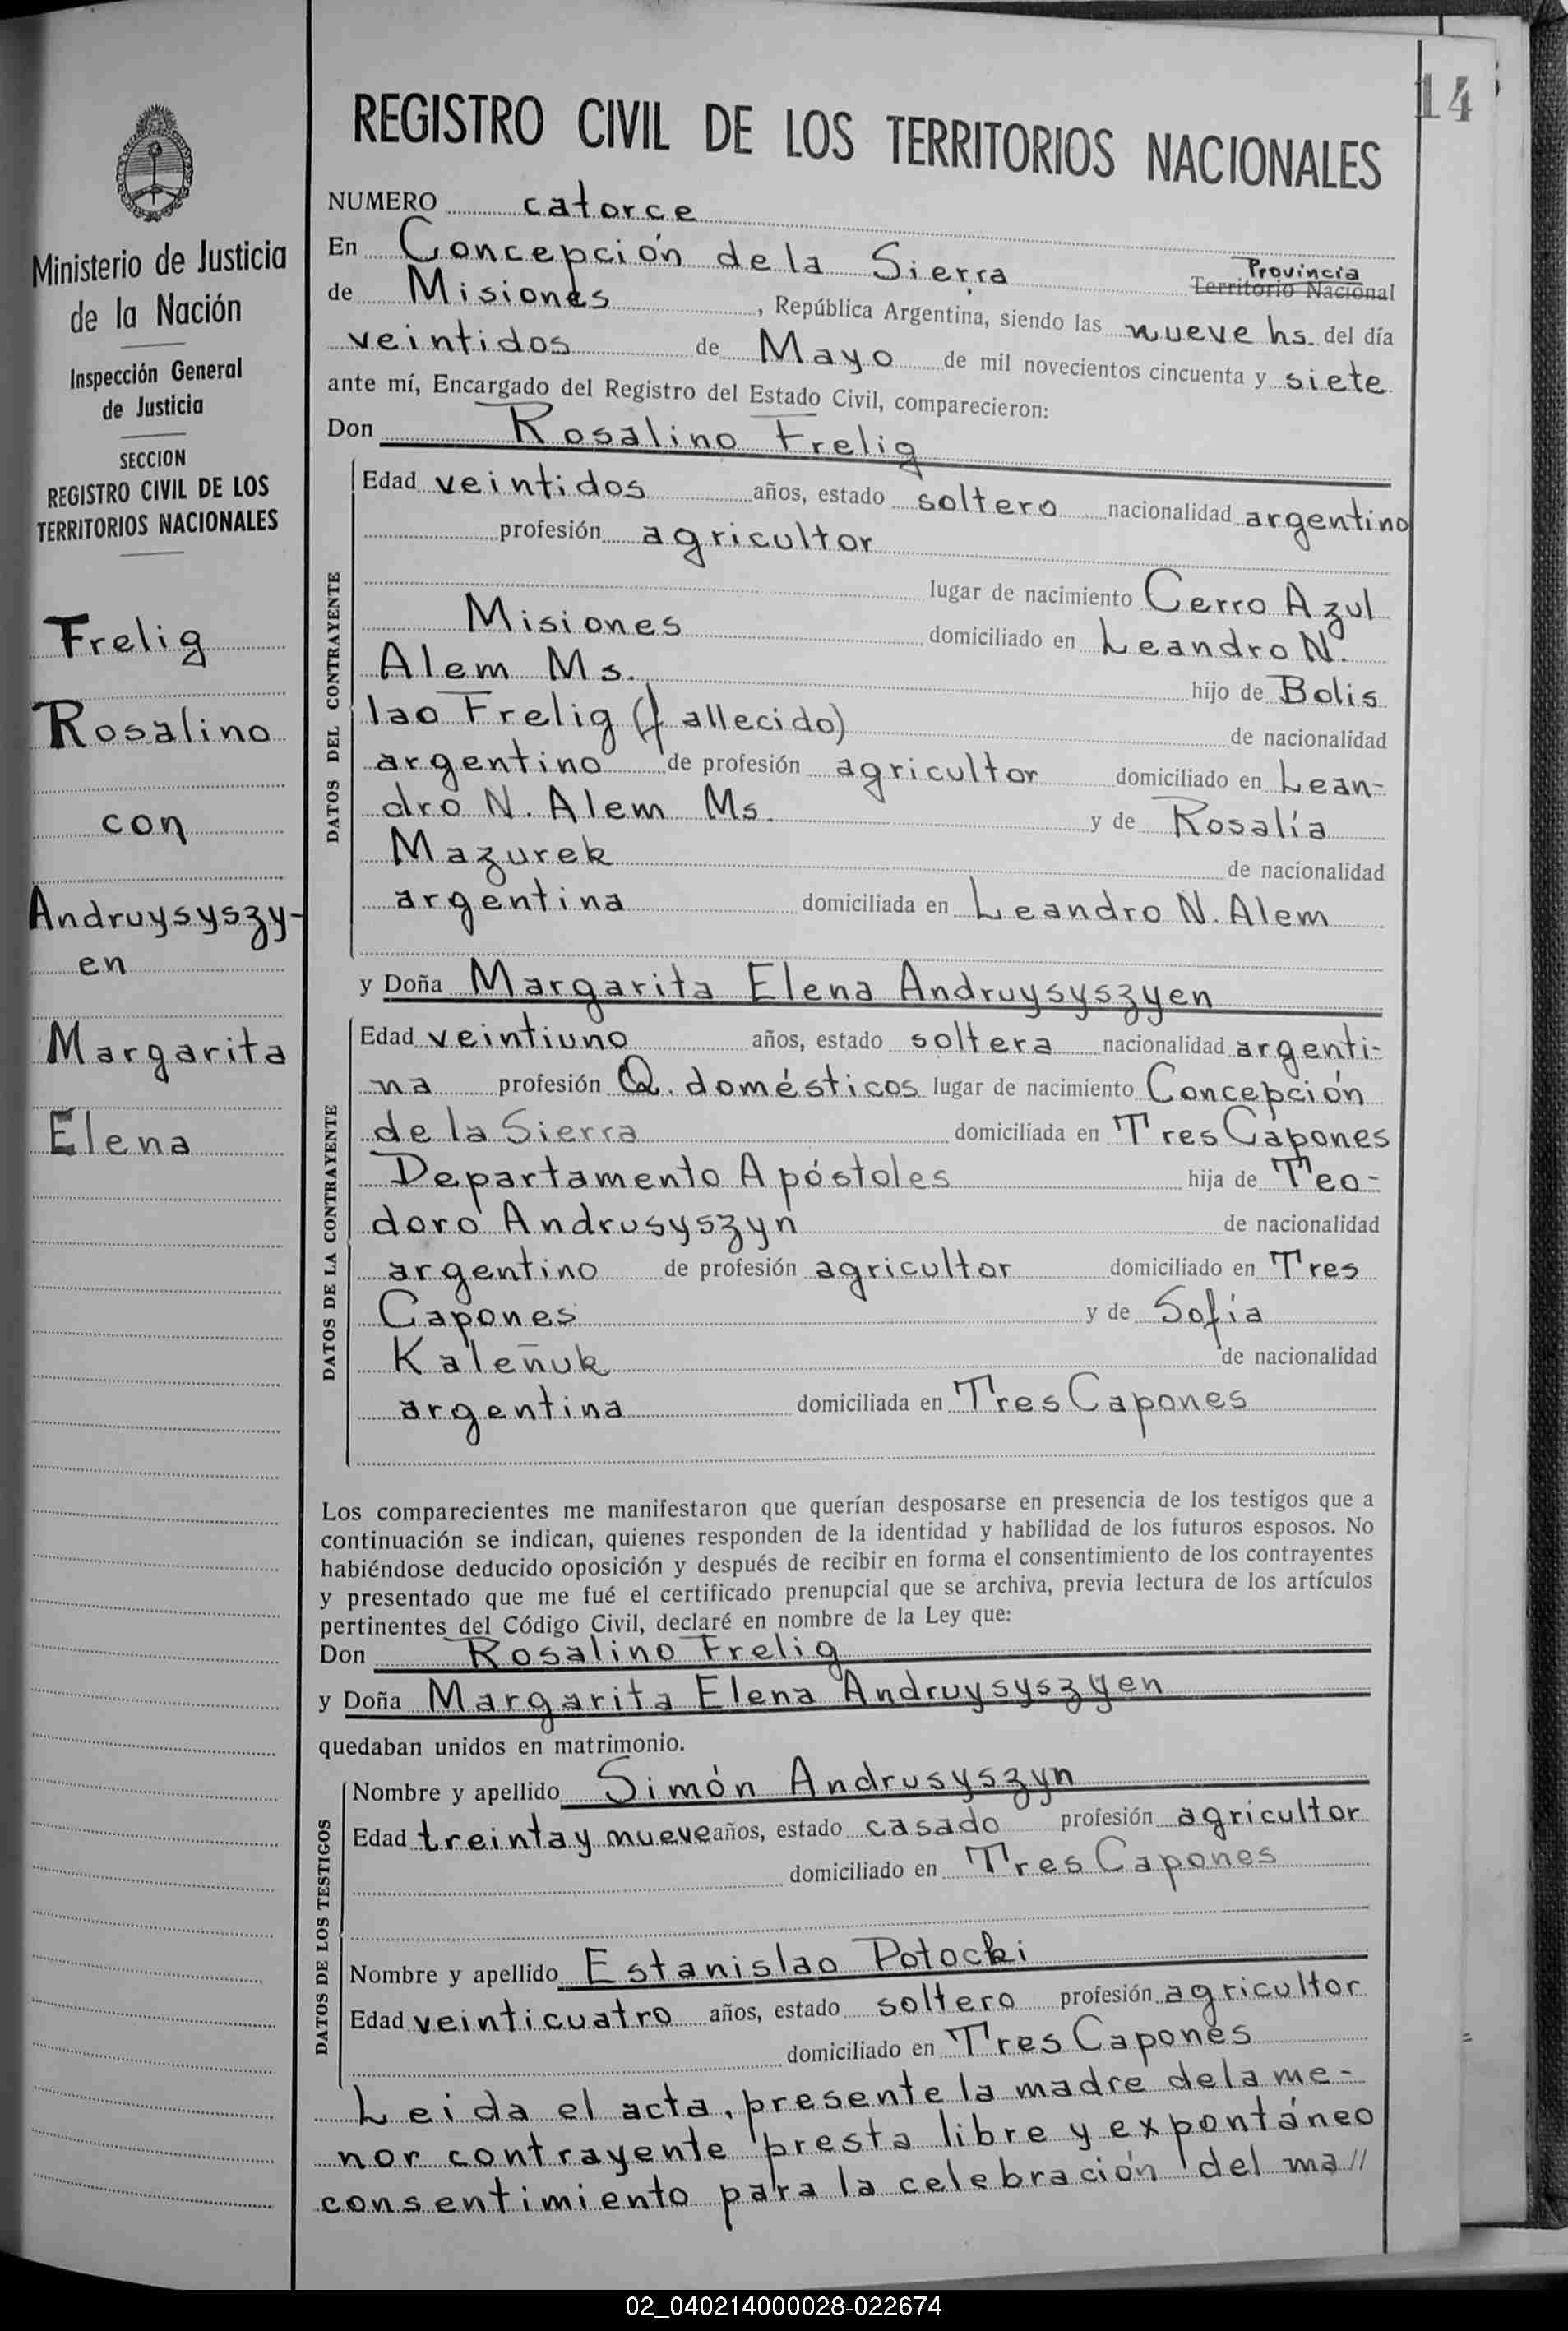 14
Ministerio de Justicia
de la Nación
Inspección General
de Justicia
SECCION
REGISTRO CIVIL DE LOS
TERRITORIOS NACIONALES
Frelig
Rosalino
con
Andruysyszy-
en
Margarita
Elena
REGISTRO CIVIL DE LOS TERRITORIOS NACIONALES
NUMERO catorce
En Concepción de la Sierra Provincia Territorio Nacional
de Misiones, República Argentina, siendo las nueve hs. del día
veintidos de Mayo de mil novecientos cincuenta y siete
ante mí, Encargado del Registro del Estado Civil, comparecieron:
Don Rosalino Frelig
DATOS DEL CONTRAYENTE
Edad veintidos años, estado soltero nacionalidad argentino
profesión agricultor
lugar de nacimiento Cerro Azul
Misiones domiciliado en Leandro N.
Alem Ms. hijo de Bolis
lao Frelig (fallecido) de nacionalidad
argentino de profesión agricultor domiciliado en Lean-
dro N. Alem Ms. y de Rosalía
Mazurek de nacionalidad
argentina domiciliada en Leandro N. Alem
y Doña Margarita Elena Andruysyszyen
DATOS DE LA CONTRAYENTE
Edad veintiuno años, estado soltera nacionalidad argenti-
na profesión Q. domésticos lugar de nacimiento Concepción
de la Sierra domiciliada en Tres Capones
Departamento Apóstoles hija de Teo-
doro Andrusyszyn de nacionalidad
argentino de profesión agricultor domiciliado en Tres
Capones y de Sofía
Kaleñuk de nacionalidad
argentina domiciliada en Tres Capones
Los comparecientes me manifestaron que querían desposarse en presencia de los testigos que a
continuación se indican, quienes responden de la identidad y habilidad de los futuros esposos. No
habiéndose deducido oposición y después de recibir en forma el consentimiento de los contrayentes
y presentado que me fué el certificado prenupcial que se archiva, previa lectura de los artículos
pertinentes del Código Civil, declaré en nombre de la Ley que:
Don Rosalino Frelig
y Doña Margarita Elena Andruysyszyen
quedaban unidos en matrimonio.
DATOS DE LOS TESTIGOS
Nombre y apellido Simón Andrusyszyn
Edad treinta y nueve años, estado casado profesión agricultor
domiciliado en Tres Capones
Nombre y apellido Estanislao Potocki
Edad veinticuatro años, estado soltero profesión agricultor
domiciliado en Tres Capones
Leida el acta, presente la madre de la me-
nor contrayente presta libre y expontáneo
consentimiento para la celebración del ma//
02_040214000028-022674